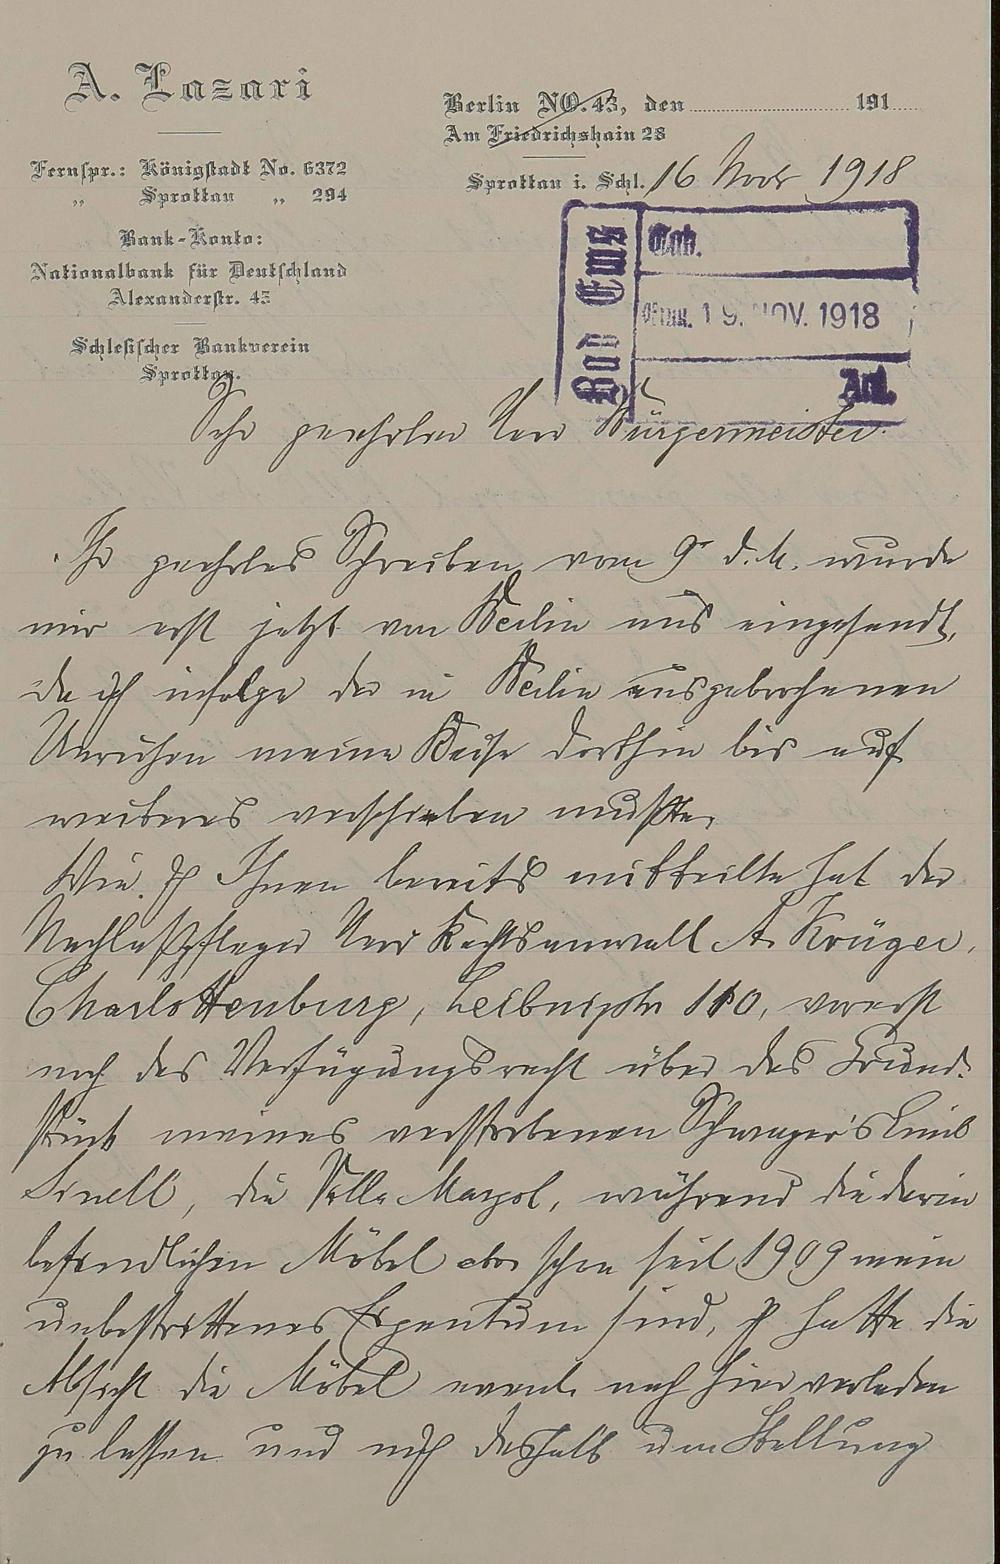 A. Lazari
Berlin NO. 43, den 191
Am Friedrichshain 28
Fernspr.: Königstadt No. 6372
„ Sprottau „ 294
Sprottau i. Schl. 16 Novb 1918
Bank-Konto:
Nationalbank für Deutschland
Alexanderstr. 45
Schlesischer Bankverein
Sprottau.
Bad Ems
Tgb.
Eing. 19. NOV. 1918
Anl.
Sehr geehrter Herr Bürgermeister.
Ihr geehrtes Schreiben vom 9r d. M. wurde
mir erst jetzt von Berlin aus eingesandt,
da ich infolge der in Berlin ausgebrochenen
Unruhen meine Reise dorthin bis auf
weiteres verschieben mußte.
Wie ich Ihnen bereits mitteilte hat der
Nachlaßpfleger Herr Rechtsanwalt A. Krüger,
Charlottenburg, Leibnizstr 110, vorerst
noch das Verfügungsrecht über das Grund-
stück meines verstorbenen Schwager's Emil
, die Villa, während die darin
befindlichen Möbel aber schon seit 1909 mein
unbestrittenes Eigentum sind, ich hatte die
Absicht die Möbel event. nach hier verladen
zu lassen und auch deshalb um Stellung